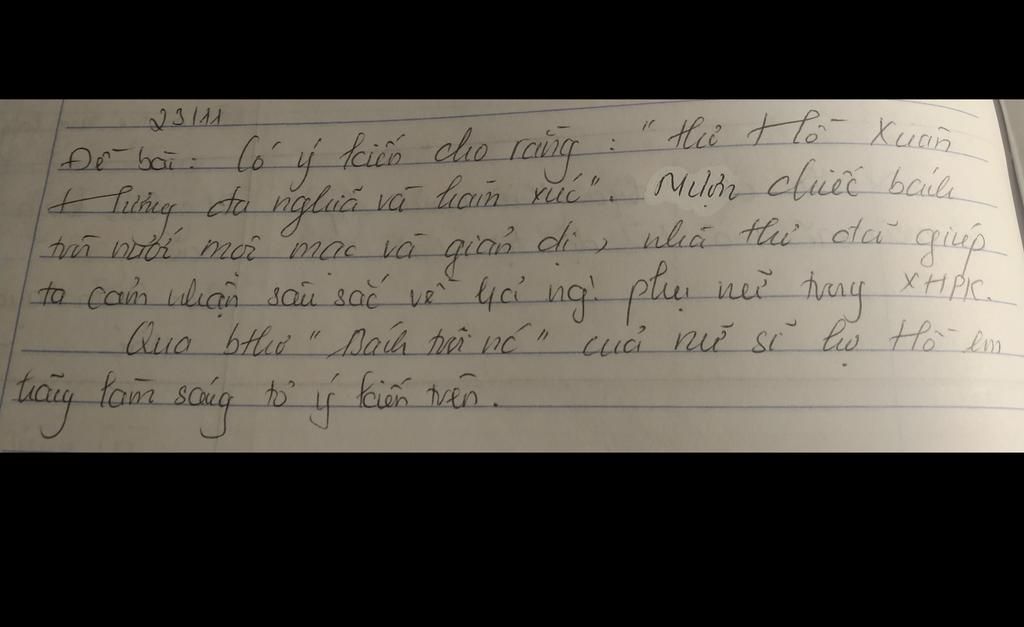 23/11
Đề bài: Có ý kiến cho rằng: "thơ Hồ Xuân
Hương đa nghĩa và hàm xúc". Mượn chiếc bánh
trôi nước mộc mạc và giản dị, nhà thơ đã giúp
ta cảm nhận sâu sắc về ng` phụ nữ trong XHPK.
Qua bthơ "Bánh trôi nc" của nữ sĩ họ Hồ em
hãy làm sáng tỏ ý kiến trên.